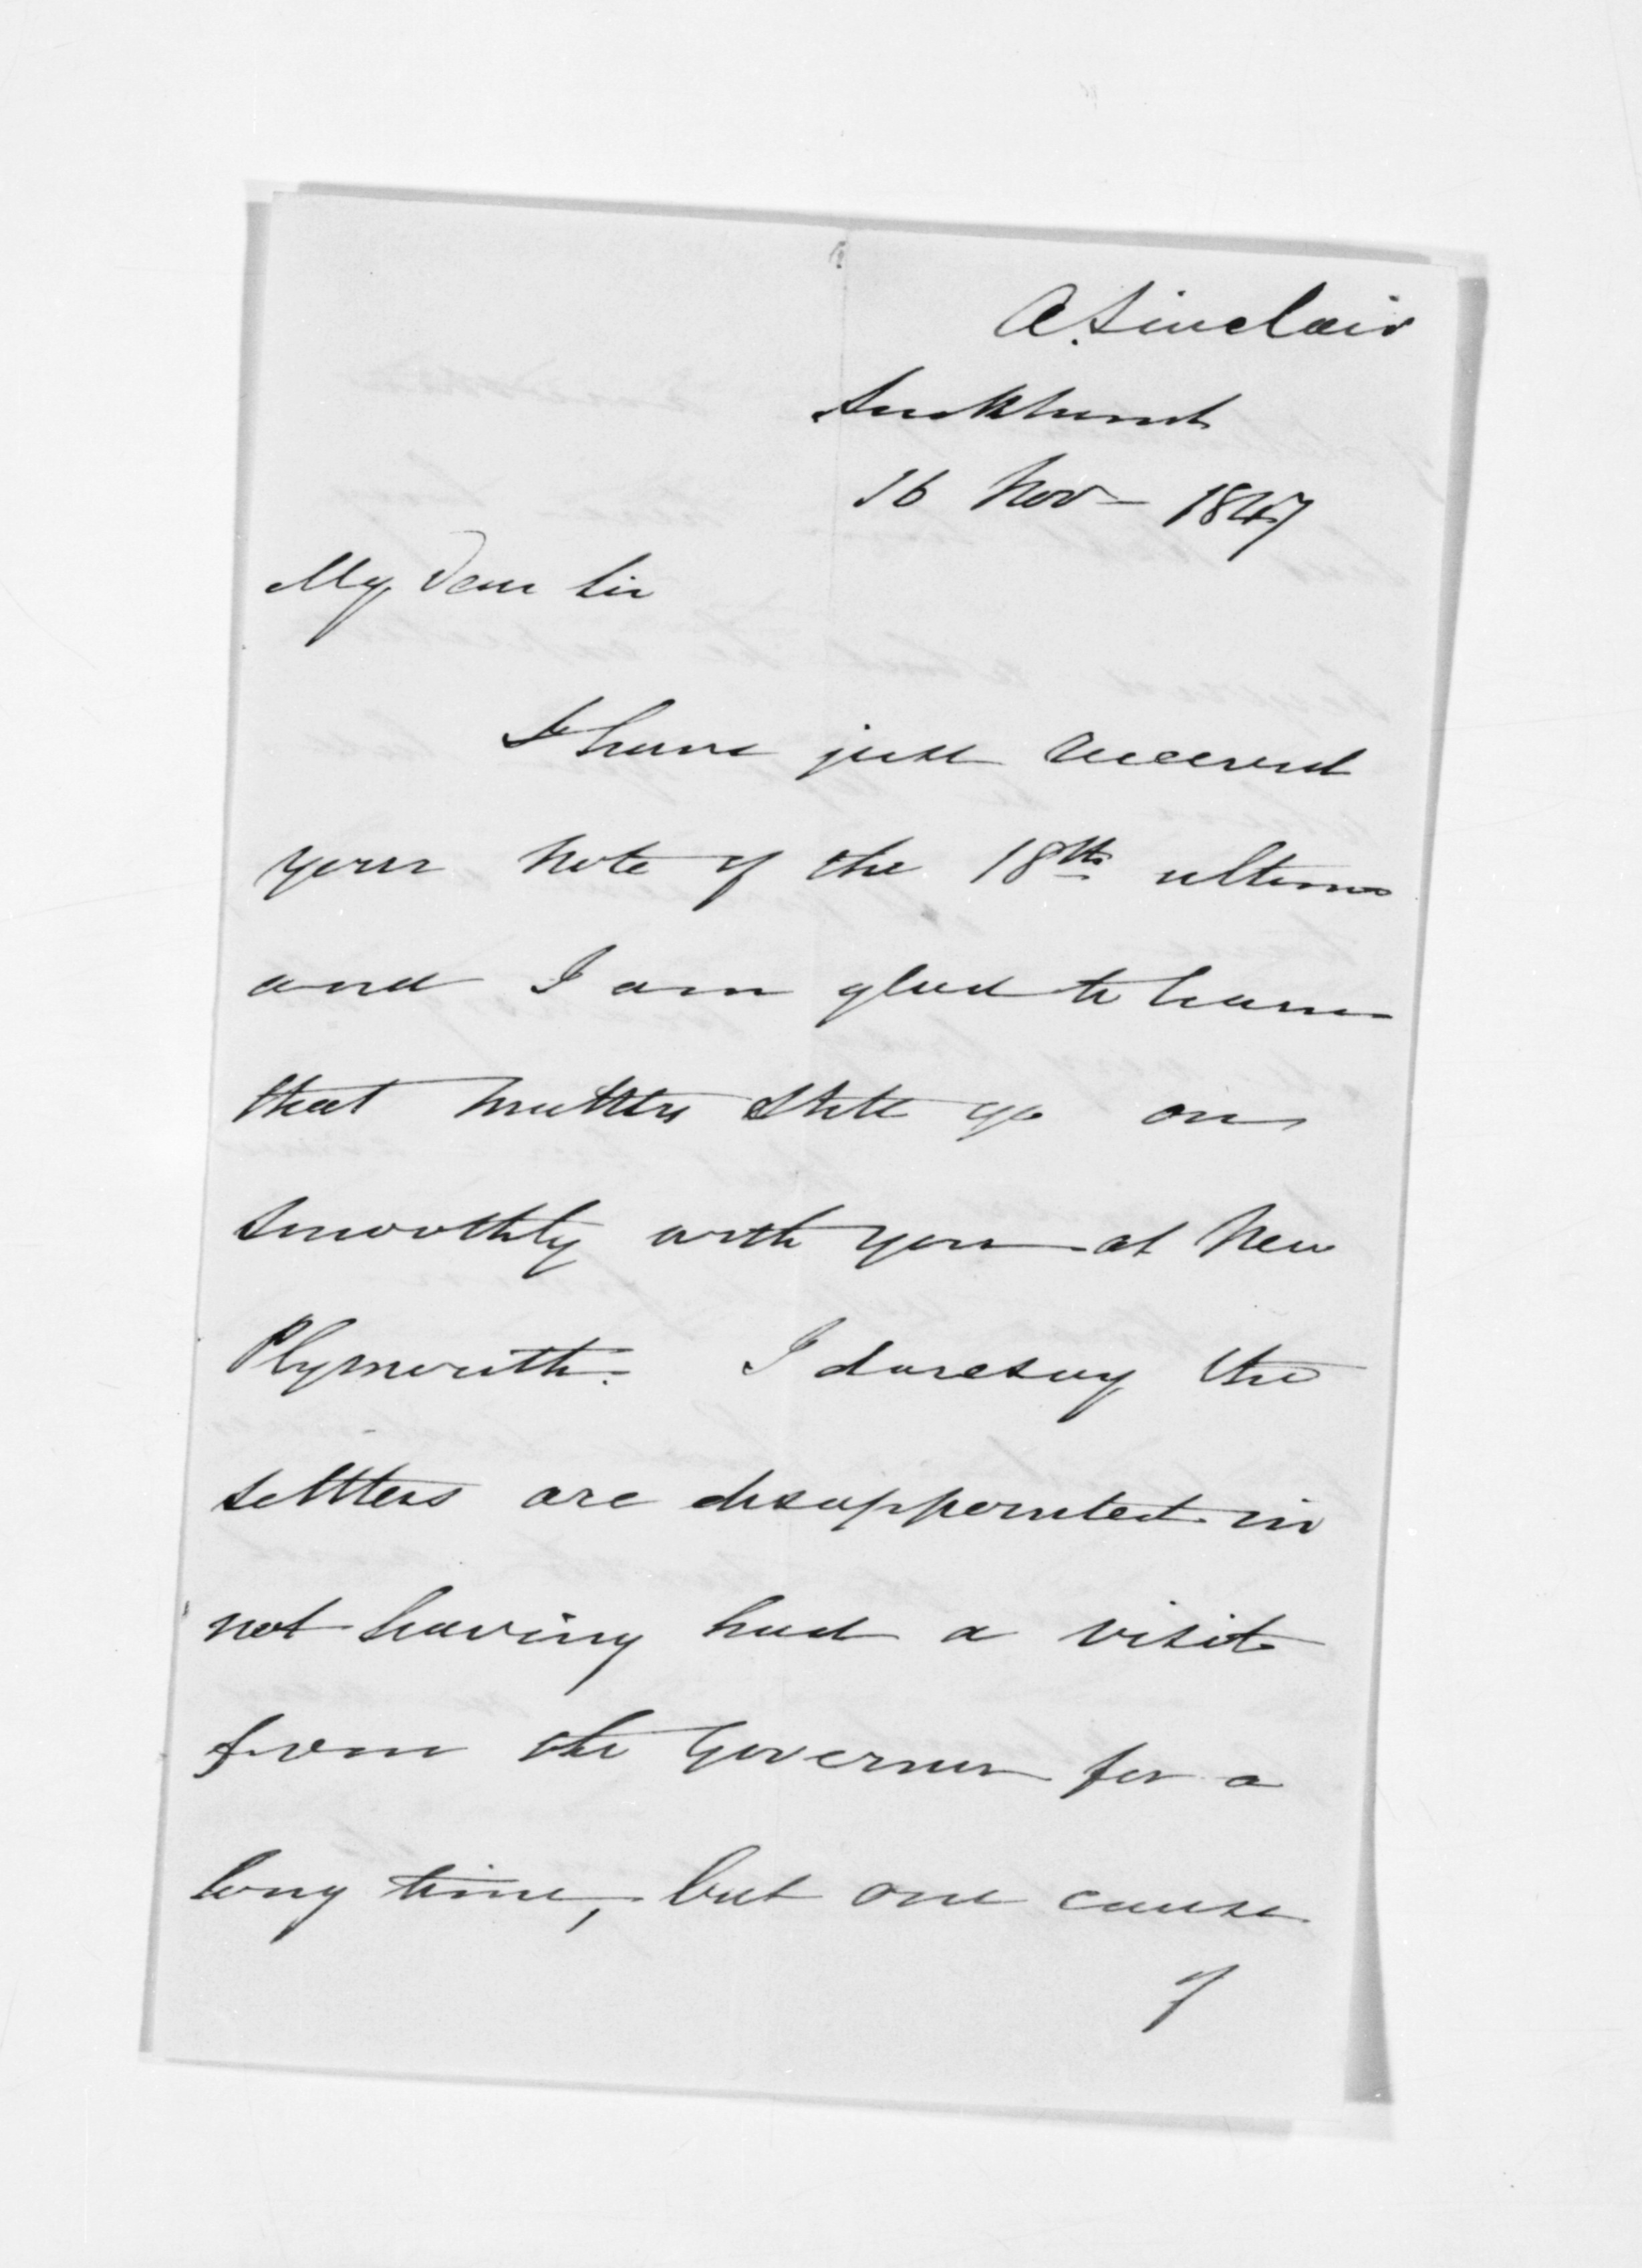 A. Sinclair
Auckland
16 Nov - 1847
My dear Sir
I have just received
your note of the 18th ultimo
and I am glad to learn
that matters still go on
smoothly with you at New
Plymouth. I daresay the
settlers are disappointed in
not having had a visit
from the Governor for a
long time, but one cause
of